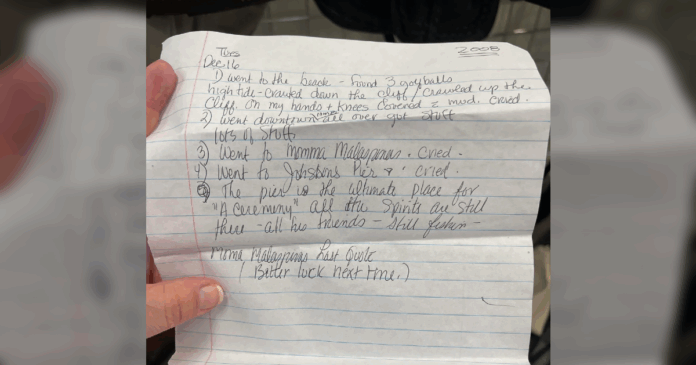 Tues 2008
Dec. 16
1) went to the beach - Found 3 golf balls
high tide - Crawled down the cliff / Crawled up the
Cliff on my hands + knees covered c mud. Cried.
2) Went downtown all over got stuff
lots of stuff.
3) Went to Momma Malaspinas. Cried.
4) Went to Johnsons Pier & cried.
The pier is the ultimate place for
"A Ceremony" all the Spirits are still
there - all his friends - Still fishin -
Moma Malaspinas Last Quote
(Better luck next time.)